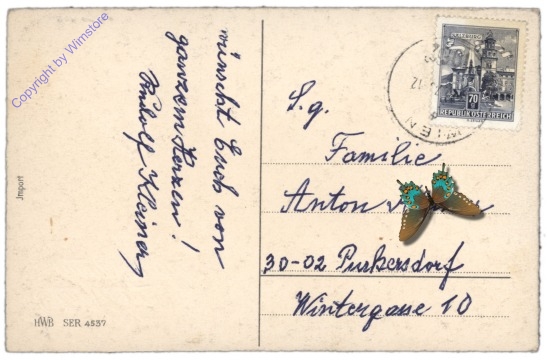 Copyright by Wimstore
wünscht Euch von
ganzem Herzen!
Rudolf Kleiner
Import
HWB SER 4537
SALZBURG
70
REPUBLIK ÖSTERREICH
WIEN
S.g.
Familie
Anton
30-02 Purkersdorf
Wintergasse 10